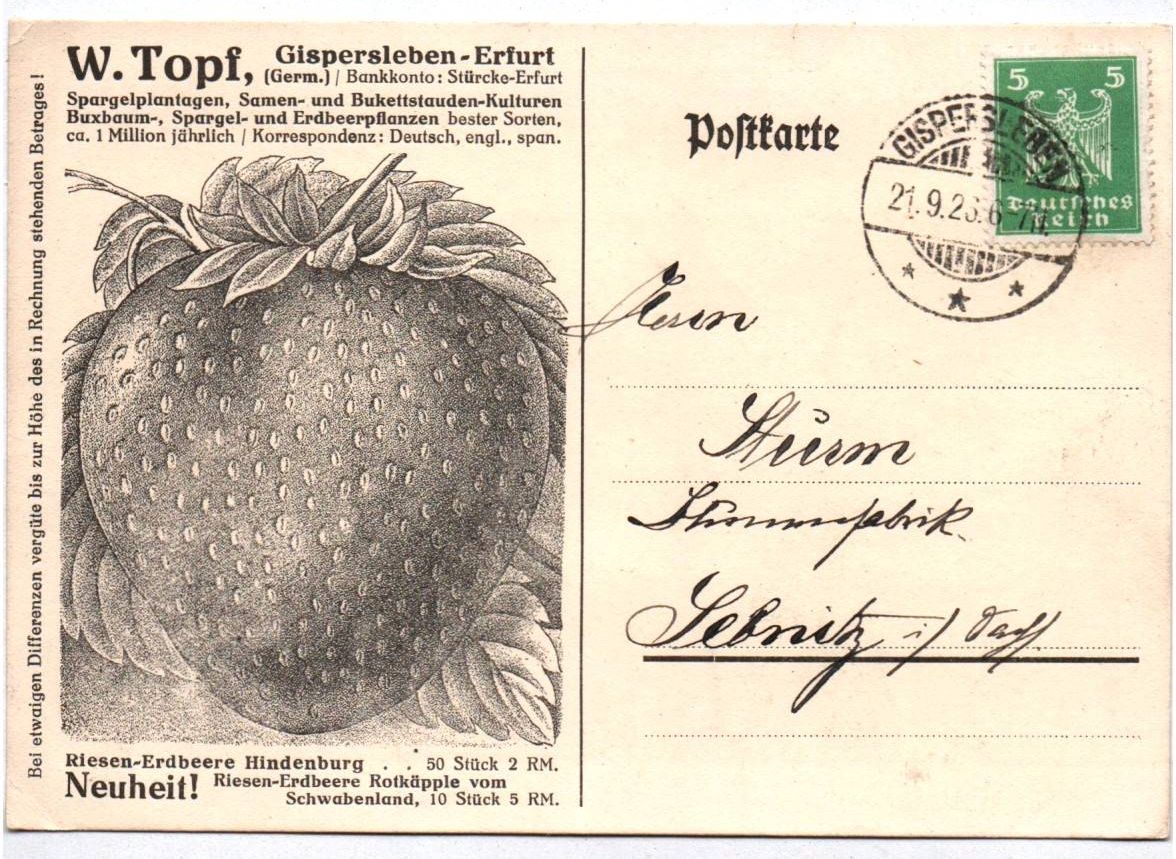 Bei etwaigen Differenzen vergüte bis zur Höhe des in Rechnung stehenden Betrages!
W. Topf, Gispersleben-Erfurt
(Germ.) / Bankkonto: Stürcke-Erfurt
Spargelplantagen, Samen- und Bukettstauden-Kulturen
Buxbaum-, Spargel- und Erdbeerpflanzen bester Sorten,
ca. 1 Million jährlich / Korrespondenz: Deutsch, engl., span.
Riesen-Erdbeere Hindenburg . . 50 Stück 2 RM.
Neuheit! Riesen-Erdbeere Rotkäpple vom
Schwabenland, 10 Stück 5 RM.
Postkarte
5 5
Deutsches
Reich
GISPERSLEBEN
21.9.26. 6-7N.
Herrn
Sturm
Blumenfabrik
Sebnitz i/ Sach